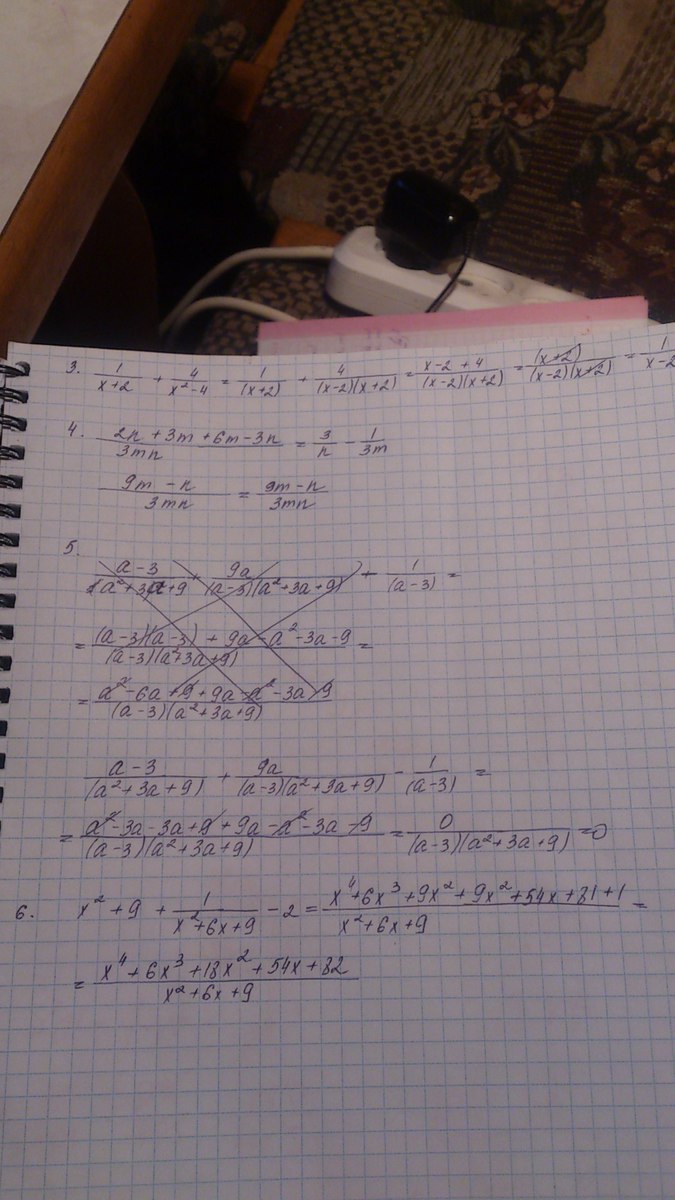 3. 1/(x+2) + 4/(x²-4) = 1/(x+2) + 4/((x-2)(x+2)) = (x-2+4)/((x-2)(x+2)) = (x+2)/((x-2)(x+2)) = 1/(x-2
4. (2n + 3m + 6m - 3n)/(3mn) = 3/n - 1/(3m)
(9m - n)/(3mn) = (9m - n)/(3mn)
5.
(a-3)/(a²+3a+9) + 9a/((a-3)(a²+3a+9)) + 1/(a-3) =
= ((a-3)(a-3) + 9a - a² - 3a - 9)/((a-3)(a²+3a+9)) =
= (a² - 6a + 9 + 9a - a² - 3a - 9)/((a-3)(a²+3a+9))
(a-3)/(a²+3a+9) + 9a/((a-3)(a²+9a+9)) - 1/(a-3) =
= (a² - 3a - 3a + 9 + 9a - a² - 3a - 9)/((a-3)(a²+3a+9)) = 0/((a-3)(a²+3a+9)) = 0
6. x² + 9 + 1/(x²+6x+9) - 2 = (x⁴ + 6x³ + 9x² + 9x² + 54x + 81 + 1)/(x²+6x+9) =
= (x⁴ + 6x³ + 18x² + 54x + 82)/(x²+6x+9)